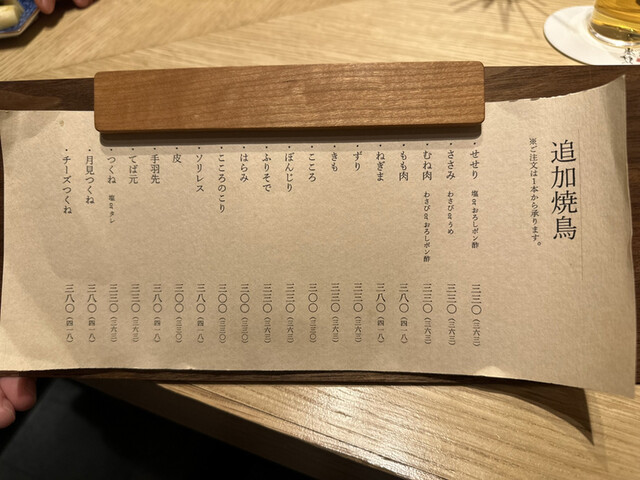 追加焼鳥
※ご注文は1本から承ります。
・せせり 塩orおろしポン酢 三三〇(三六三)
・ささみ わさびorうめ 三三〇(三六三)
・むね肉 わさびorおろしポン酢 三三〇(三六三)
・もも肉 三八〇(四一八)
・ねぎま 三八〇(四一八)
・ずり 三三〇(三六三)
・きも 三三〇(三六三)
・こころ 三〇〇(三三〇)
・ぼんじり 三三〇(三六三)
・ふりそで 三三〇(三六三)
・はらみ 三〇〇(三三〇)
・こころのこり 三〇〇(三三〇)
・ソリレス 三八〇(四一八)
・皮 三〇〇(三三〇)
・手羽先 三八〇(四一八)
・てば元 三三〇(三六三)
・つくね 塩orタレ 三三〇(三六三)
・月見つくね 三八〇(四一八)
・チーズつくね 三八〇(四一八)